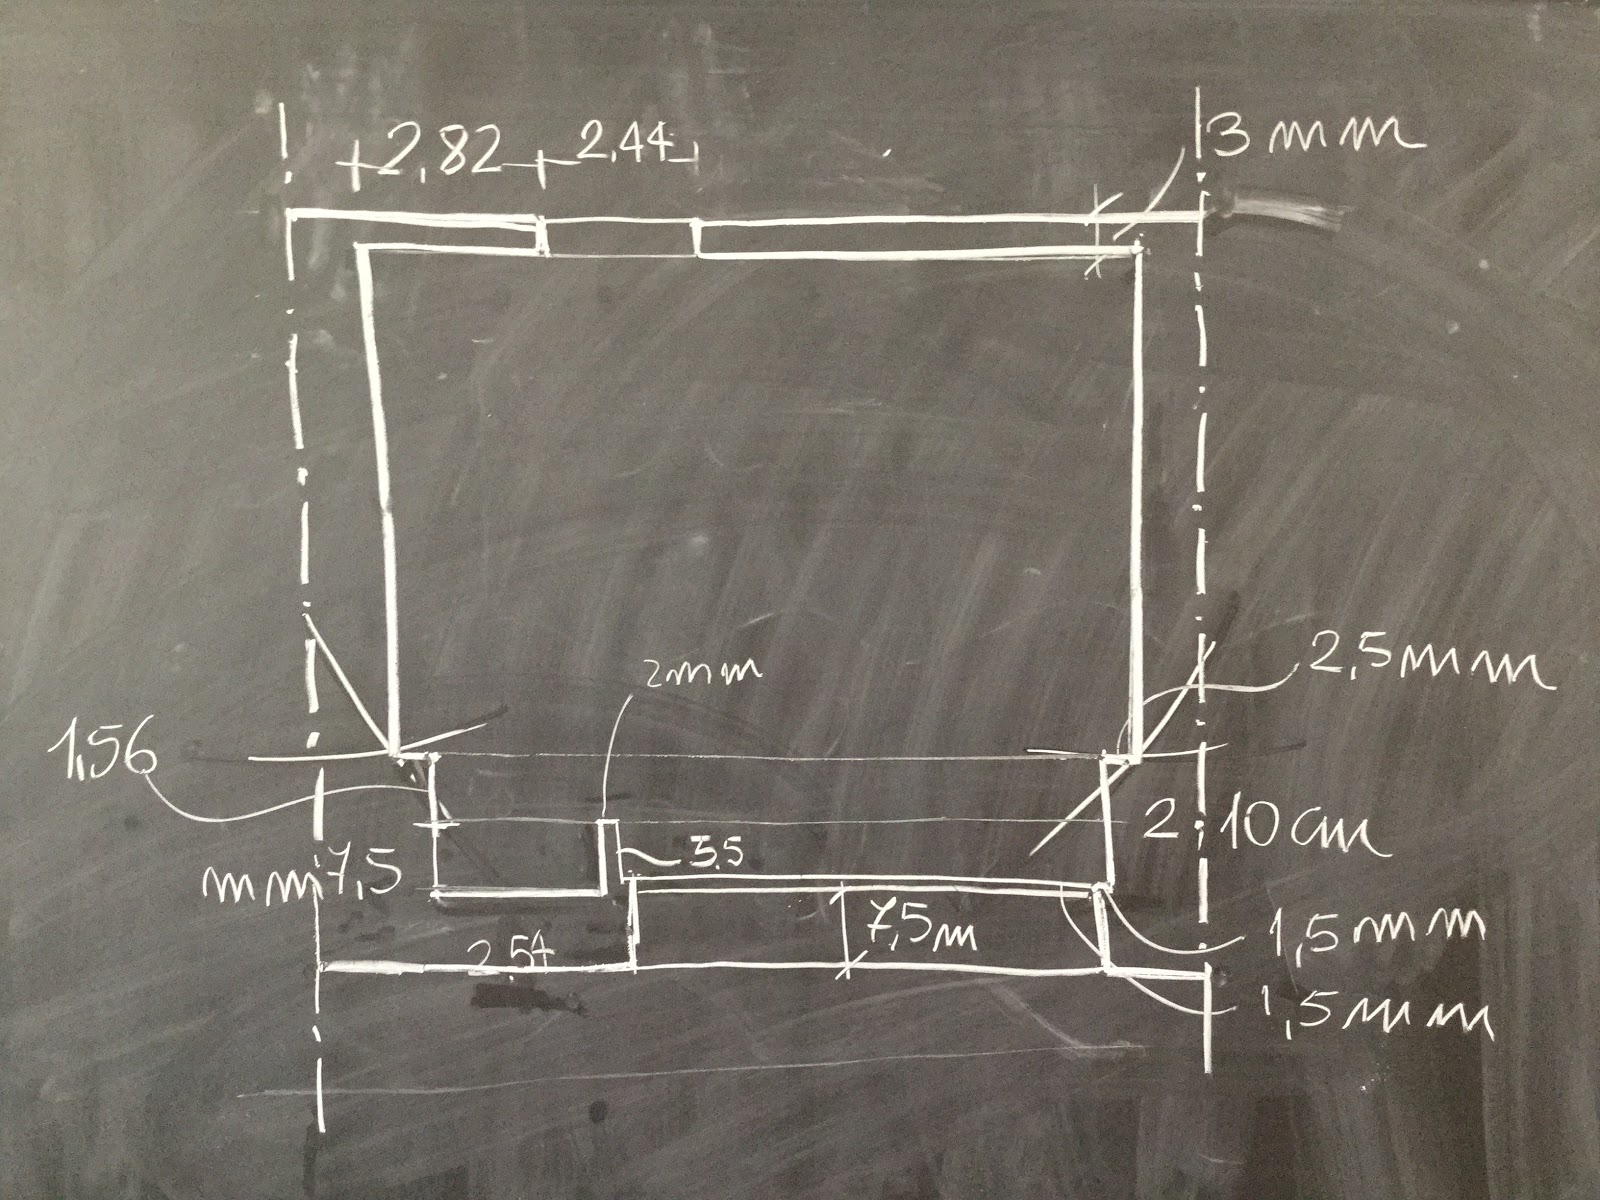 2,82
2,44
3mm
2,5mm
2mm
1,56
2,10cm
mm7,5
3.5
7,5m
1,5mm
2,54
1,5mm